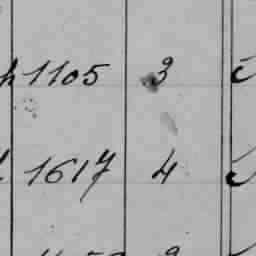 1105 3
1617 4